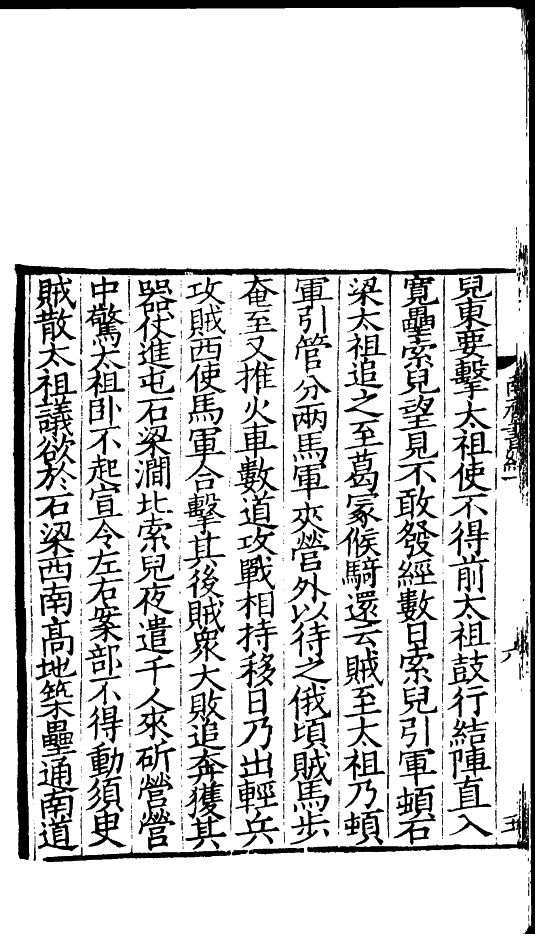 兒東要擊太祖使不得前太祖鼓行結陣直入
寛壘索兒望見不敢發經數日索兒引軍頓石
梁太祖追之至葛冢候騎還云賊至太祖乃頓
軍引管分兩馬軍夾營外以待之俄頃賊馬步
奄至又推火車數道攻戰相持移日乃出輕兵
攻賊西使馬軍合擊其後賊衆大敗追奔獲其
器仗進屯石梁澗北索兒夜遣千人來斫營營
中驚太祖卧不起宣令左右案部不得動須臾
賊散太祖議欲於石梁西南髙地築壘通南道